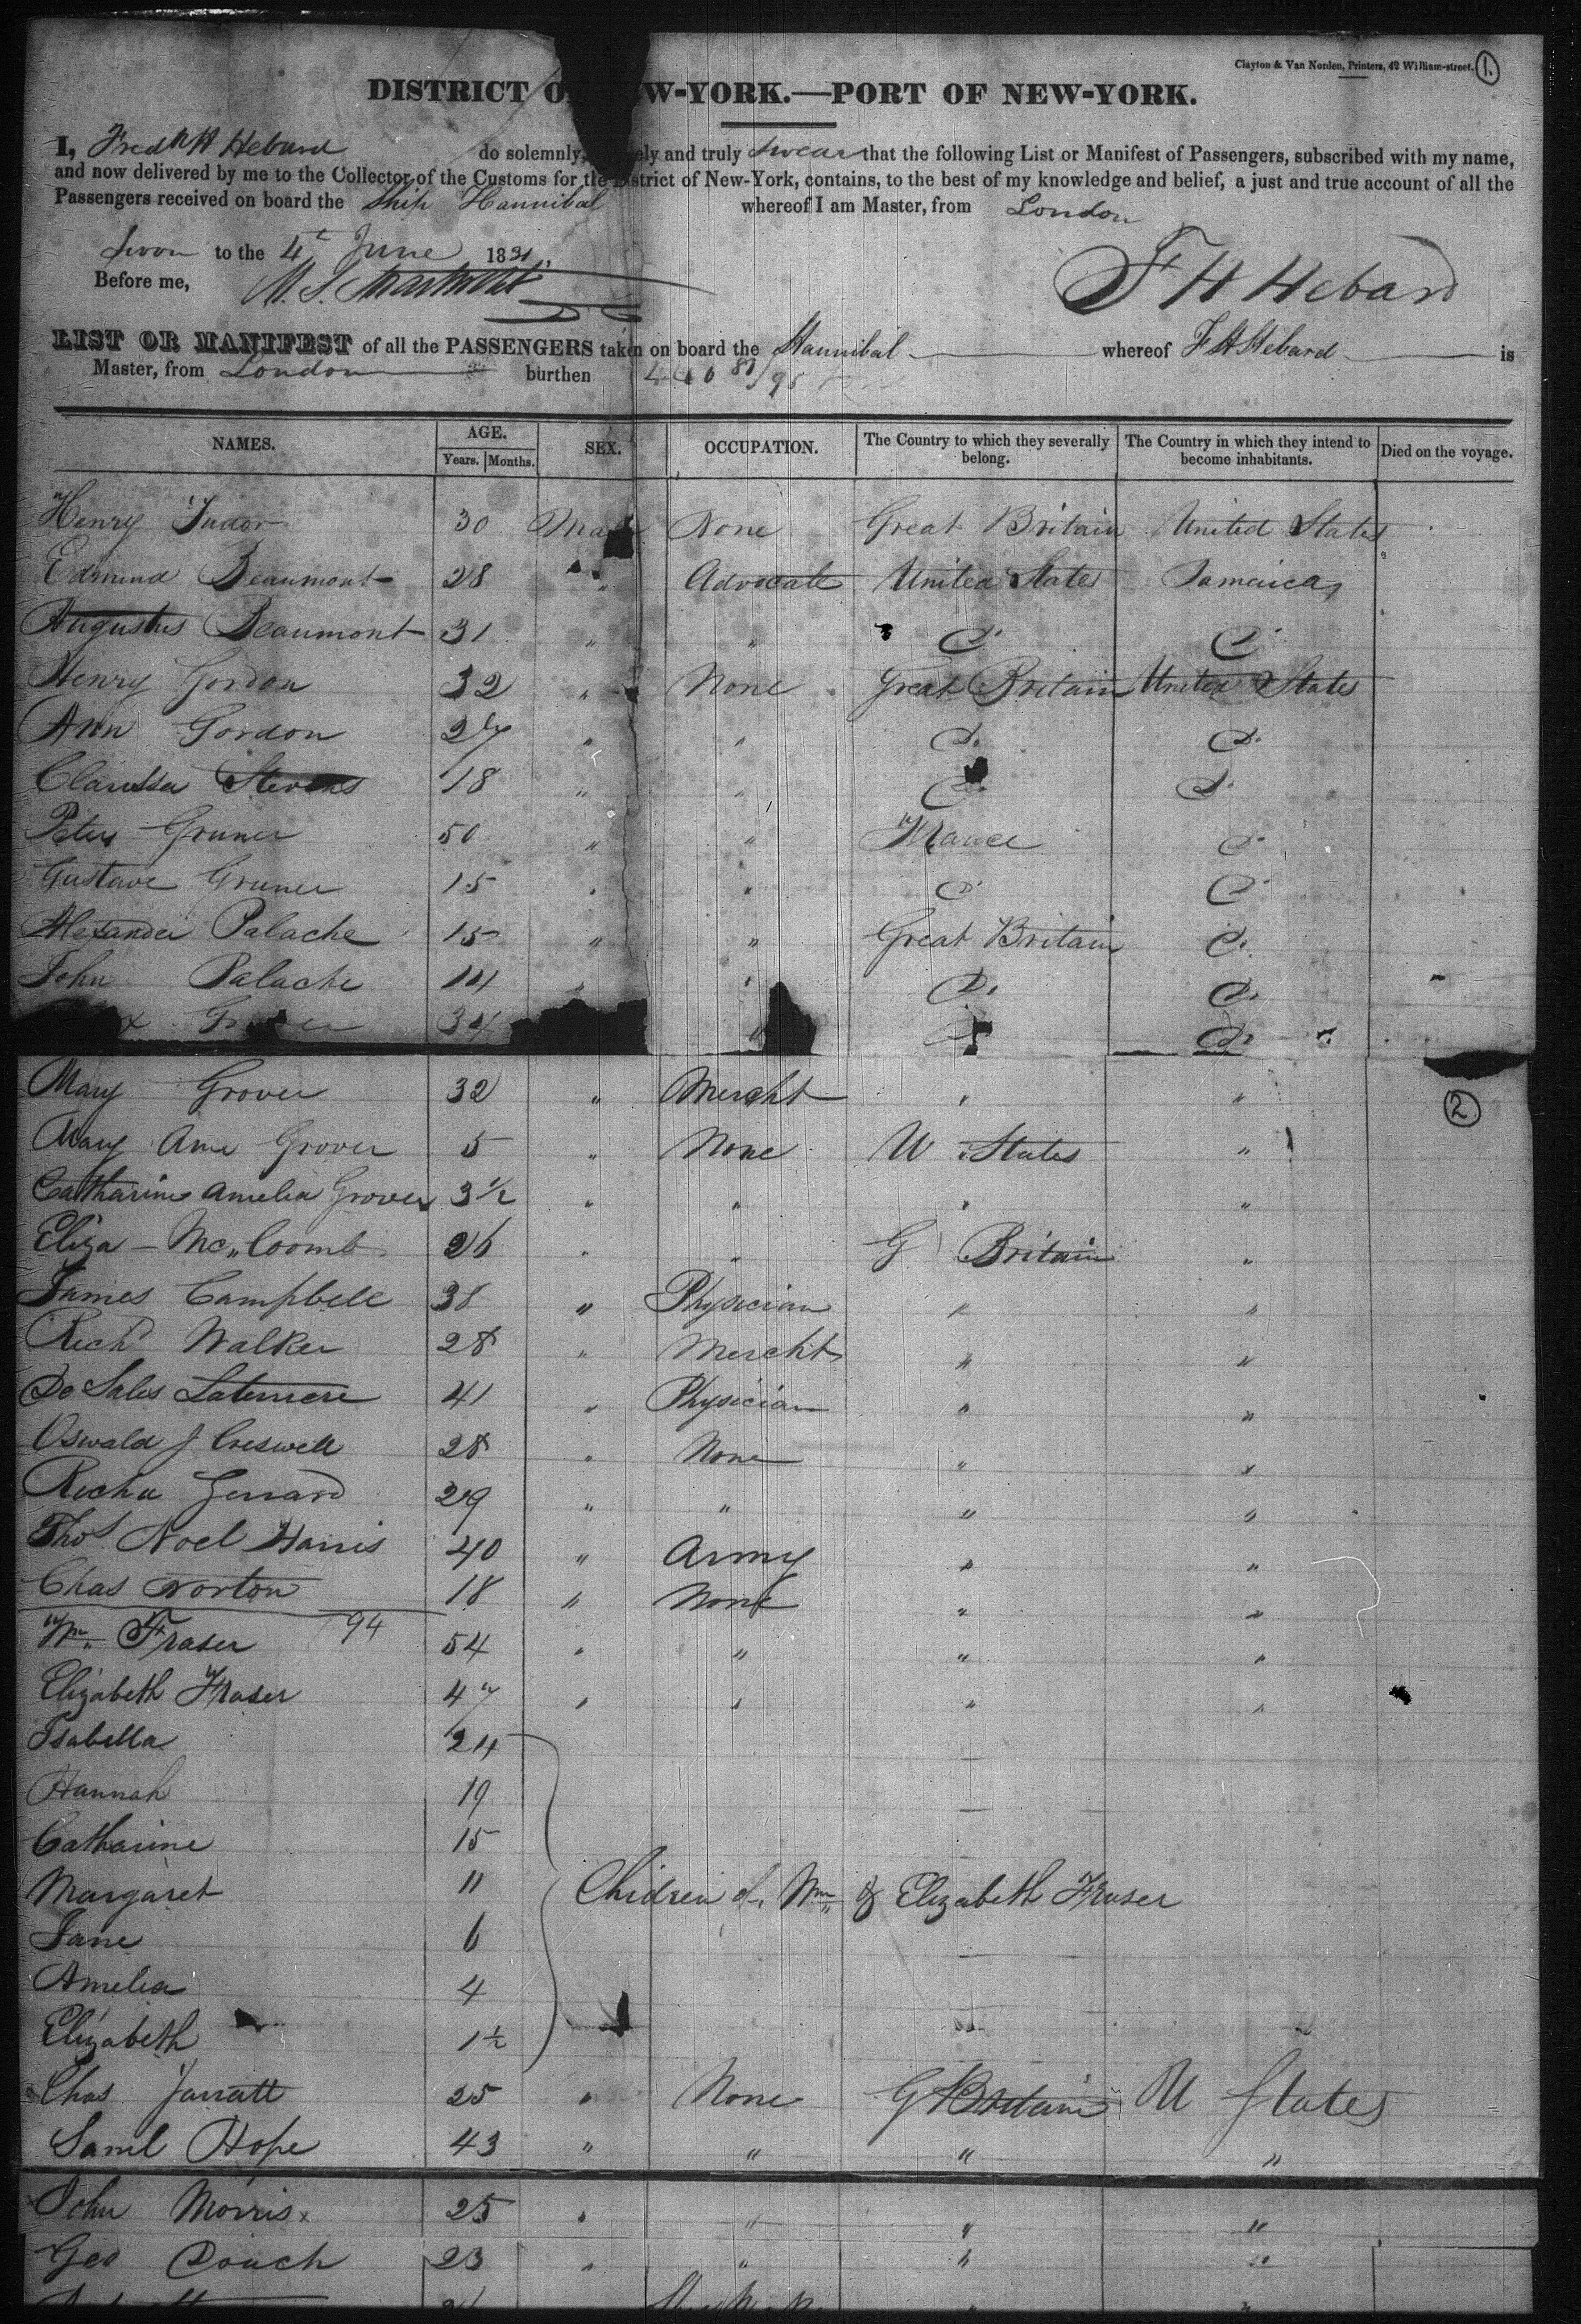 Clayton & Van Norden, Printers, 42 William-street. 1.
DISTRICT OF NEW-YORK.—PORT OF NEW-YORK.
I, Fredk H Hebard do solemnly, ely and truly swear that the following List or Manifest of Passengers, subscribed with my name,
and now delivered by me to the Collector of the Customs for the District of New-York, contains, to the best of my knowledge and belief, a just and true account of all the
Passengers received on board the Ship Hannibal whereof I am Master, from London
Sworn to the 4th June 1831.
Before me,
F H Hebard
LIST OR MANIFEST of all the PASSENGERS taken on board the Hannibal whereof F H Hebard is
Master, from London burthen
NAMES. AGE. SEX. OCCUPATION. The Country to which they severally belong. The Country in which they intend to become inhabitants. Died on the voyage.
Years. Months.
Henry Tudor 30 Male None Great Britain United States
Edmund Beaumont 28 " Advocate United States Jamaica
Augustus Beaumont 31 " " Do. Do.
Henry Gordon 32 " None Great Britain United States
Ann Gordon 27 " " Do. Do.
Clarissa Stevens 18 " " Do. Do.
Peter Gruner 50 " " France Do.
Gustave Gruner 15 " " Do. Do.
Alexander Palache 15 " " Great Britain Do.
John Palache 14 " " Do. Do.
34 " Do.
Mary Grover 32 " Mercht " "
2
Mary Ann Grover 5 " None U States "
Catharine Amelia Grover 3½ " " " "
Eliza Mc"Coomb 26 " " G Britain "
James Campbell 38 " Physician " "
Richd Walker 28 " Mercht " "
De Sales Laterriere 41 " Physician " "
Oswald J Creswell 28 " None " "
Gerrard 29 " " " "
Thos Noel Harris 40 " Army " "
Chas Norton 18 " None " "
Wm Fraser 94 54 " " " "
Elizabeth Fraser 47 " " " "
Isabella 24
Hannah 19
Catharine 15
Margaret 11 Children of Wm & Elizabeth Fraser
Jane 6
Amelia 4
Elizabeth 1½
Chas Jarratt 25 " None G Britain U States
Saml Hope 43 " " " "
John Morris x 25 " " " "
Geo Couch 23 " " " "